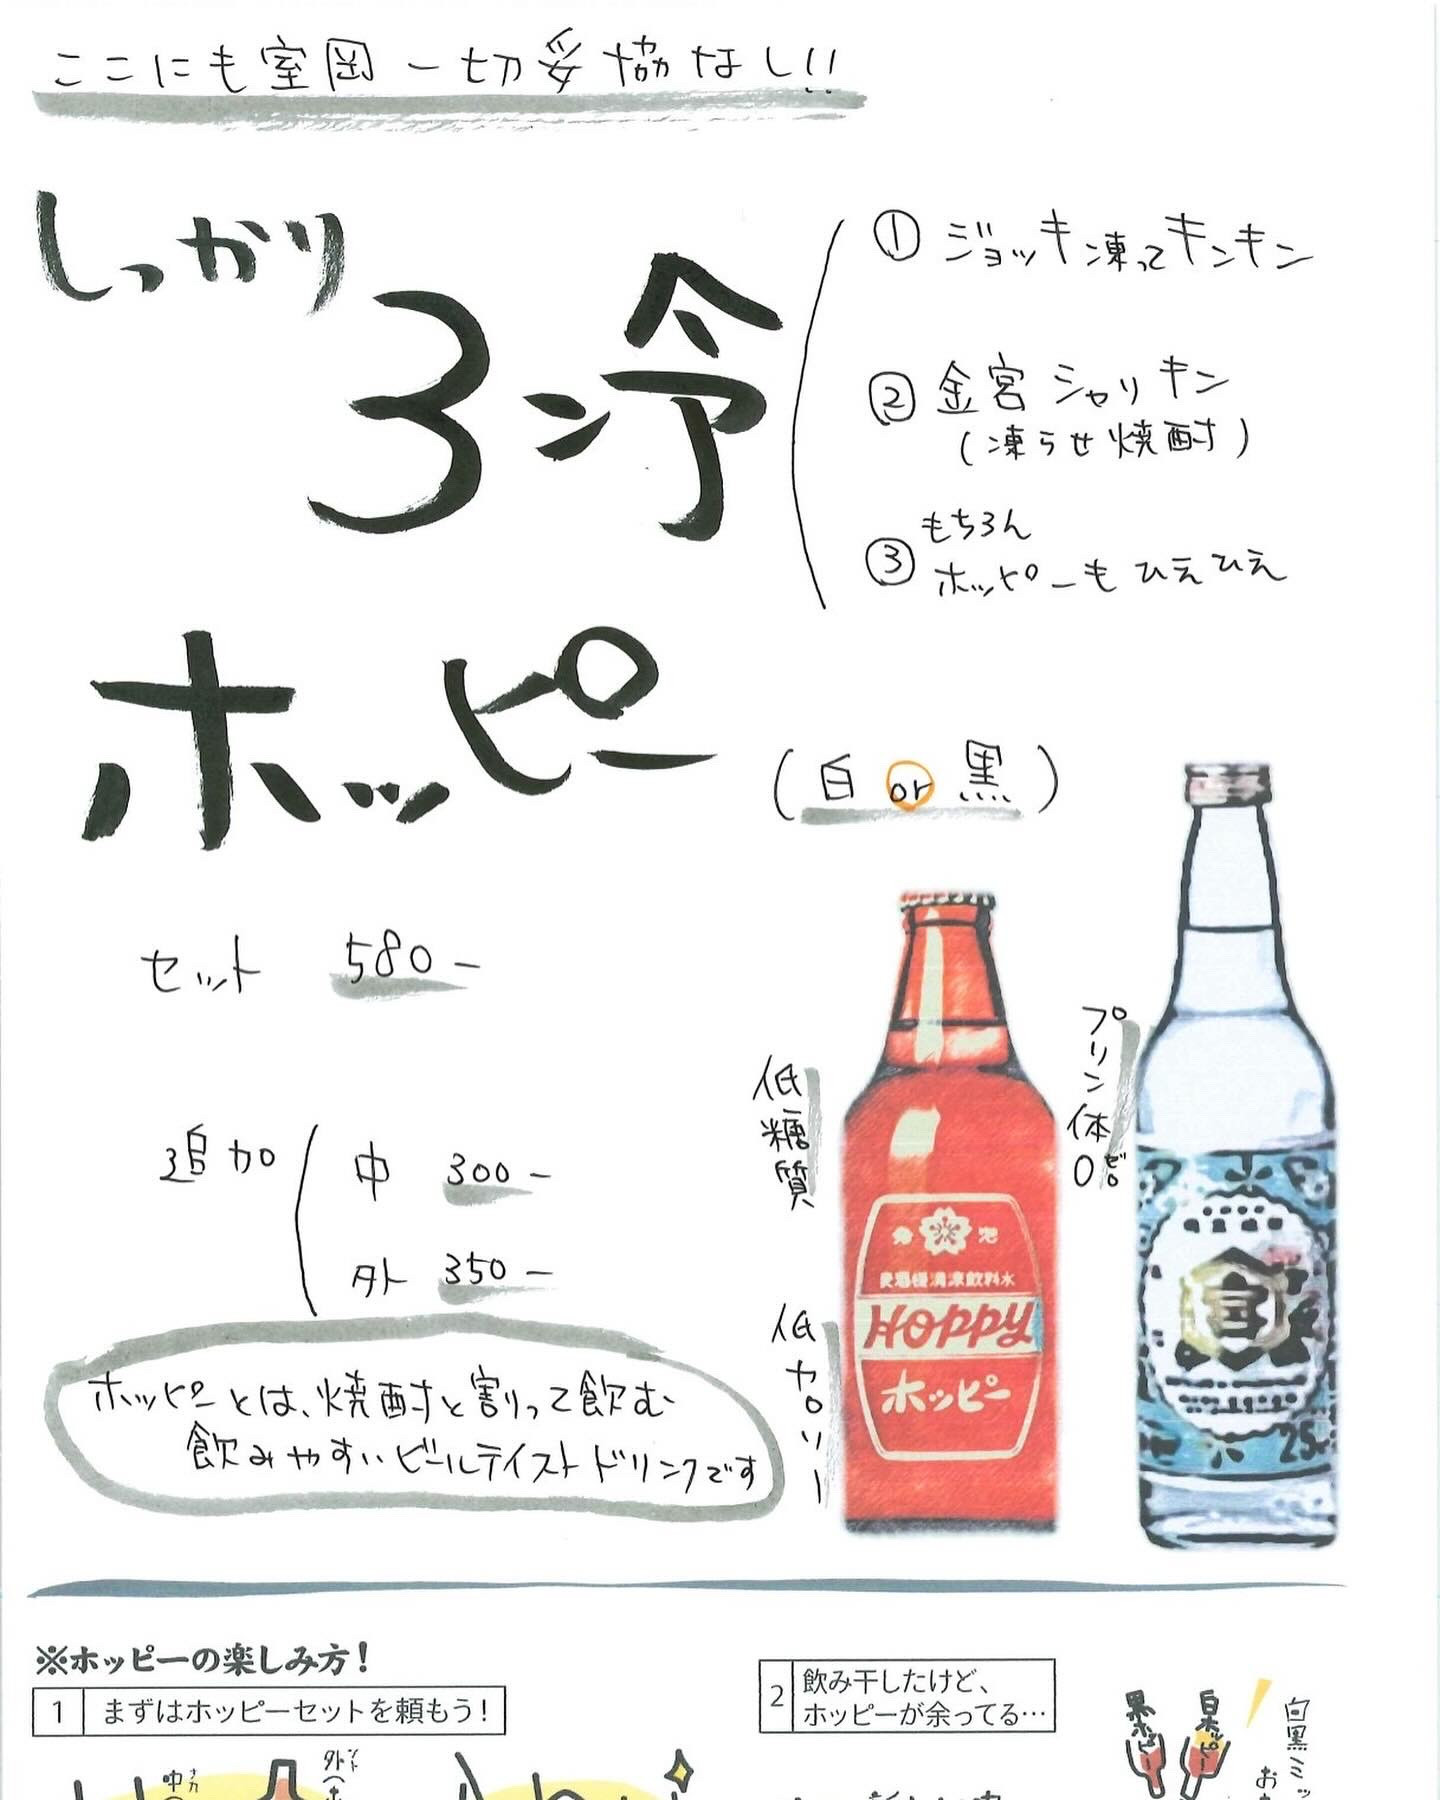 ここにも室岡一切妥協なし!!
しっかり
3冷
ホッピー
(白 or 黒)
① ジョッキ凍ってキンキン
② 金宮シャリキン
(凍らせ焼酎)
③ もちろん
ホッピーもひえひえ
セット 580-
追加
中 300-
外 350-
ホッピーとは、焼酎と割って飲む
飲みやすいビールテイストドリンクです
低糖質
低カロリー
プリン体0
ゼロ
麦酒様清涼飲料水
HOPPY
ホッピー
宮
25
※ホッピーの楽しみ方!
1 まずはホッピーセットを頼もう!
中
ナカ
外
ソト
2 飲み干したけど、
ホッピーが余ってる…
黒ホッピー
白ホッピー
白黒ミッ